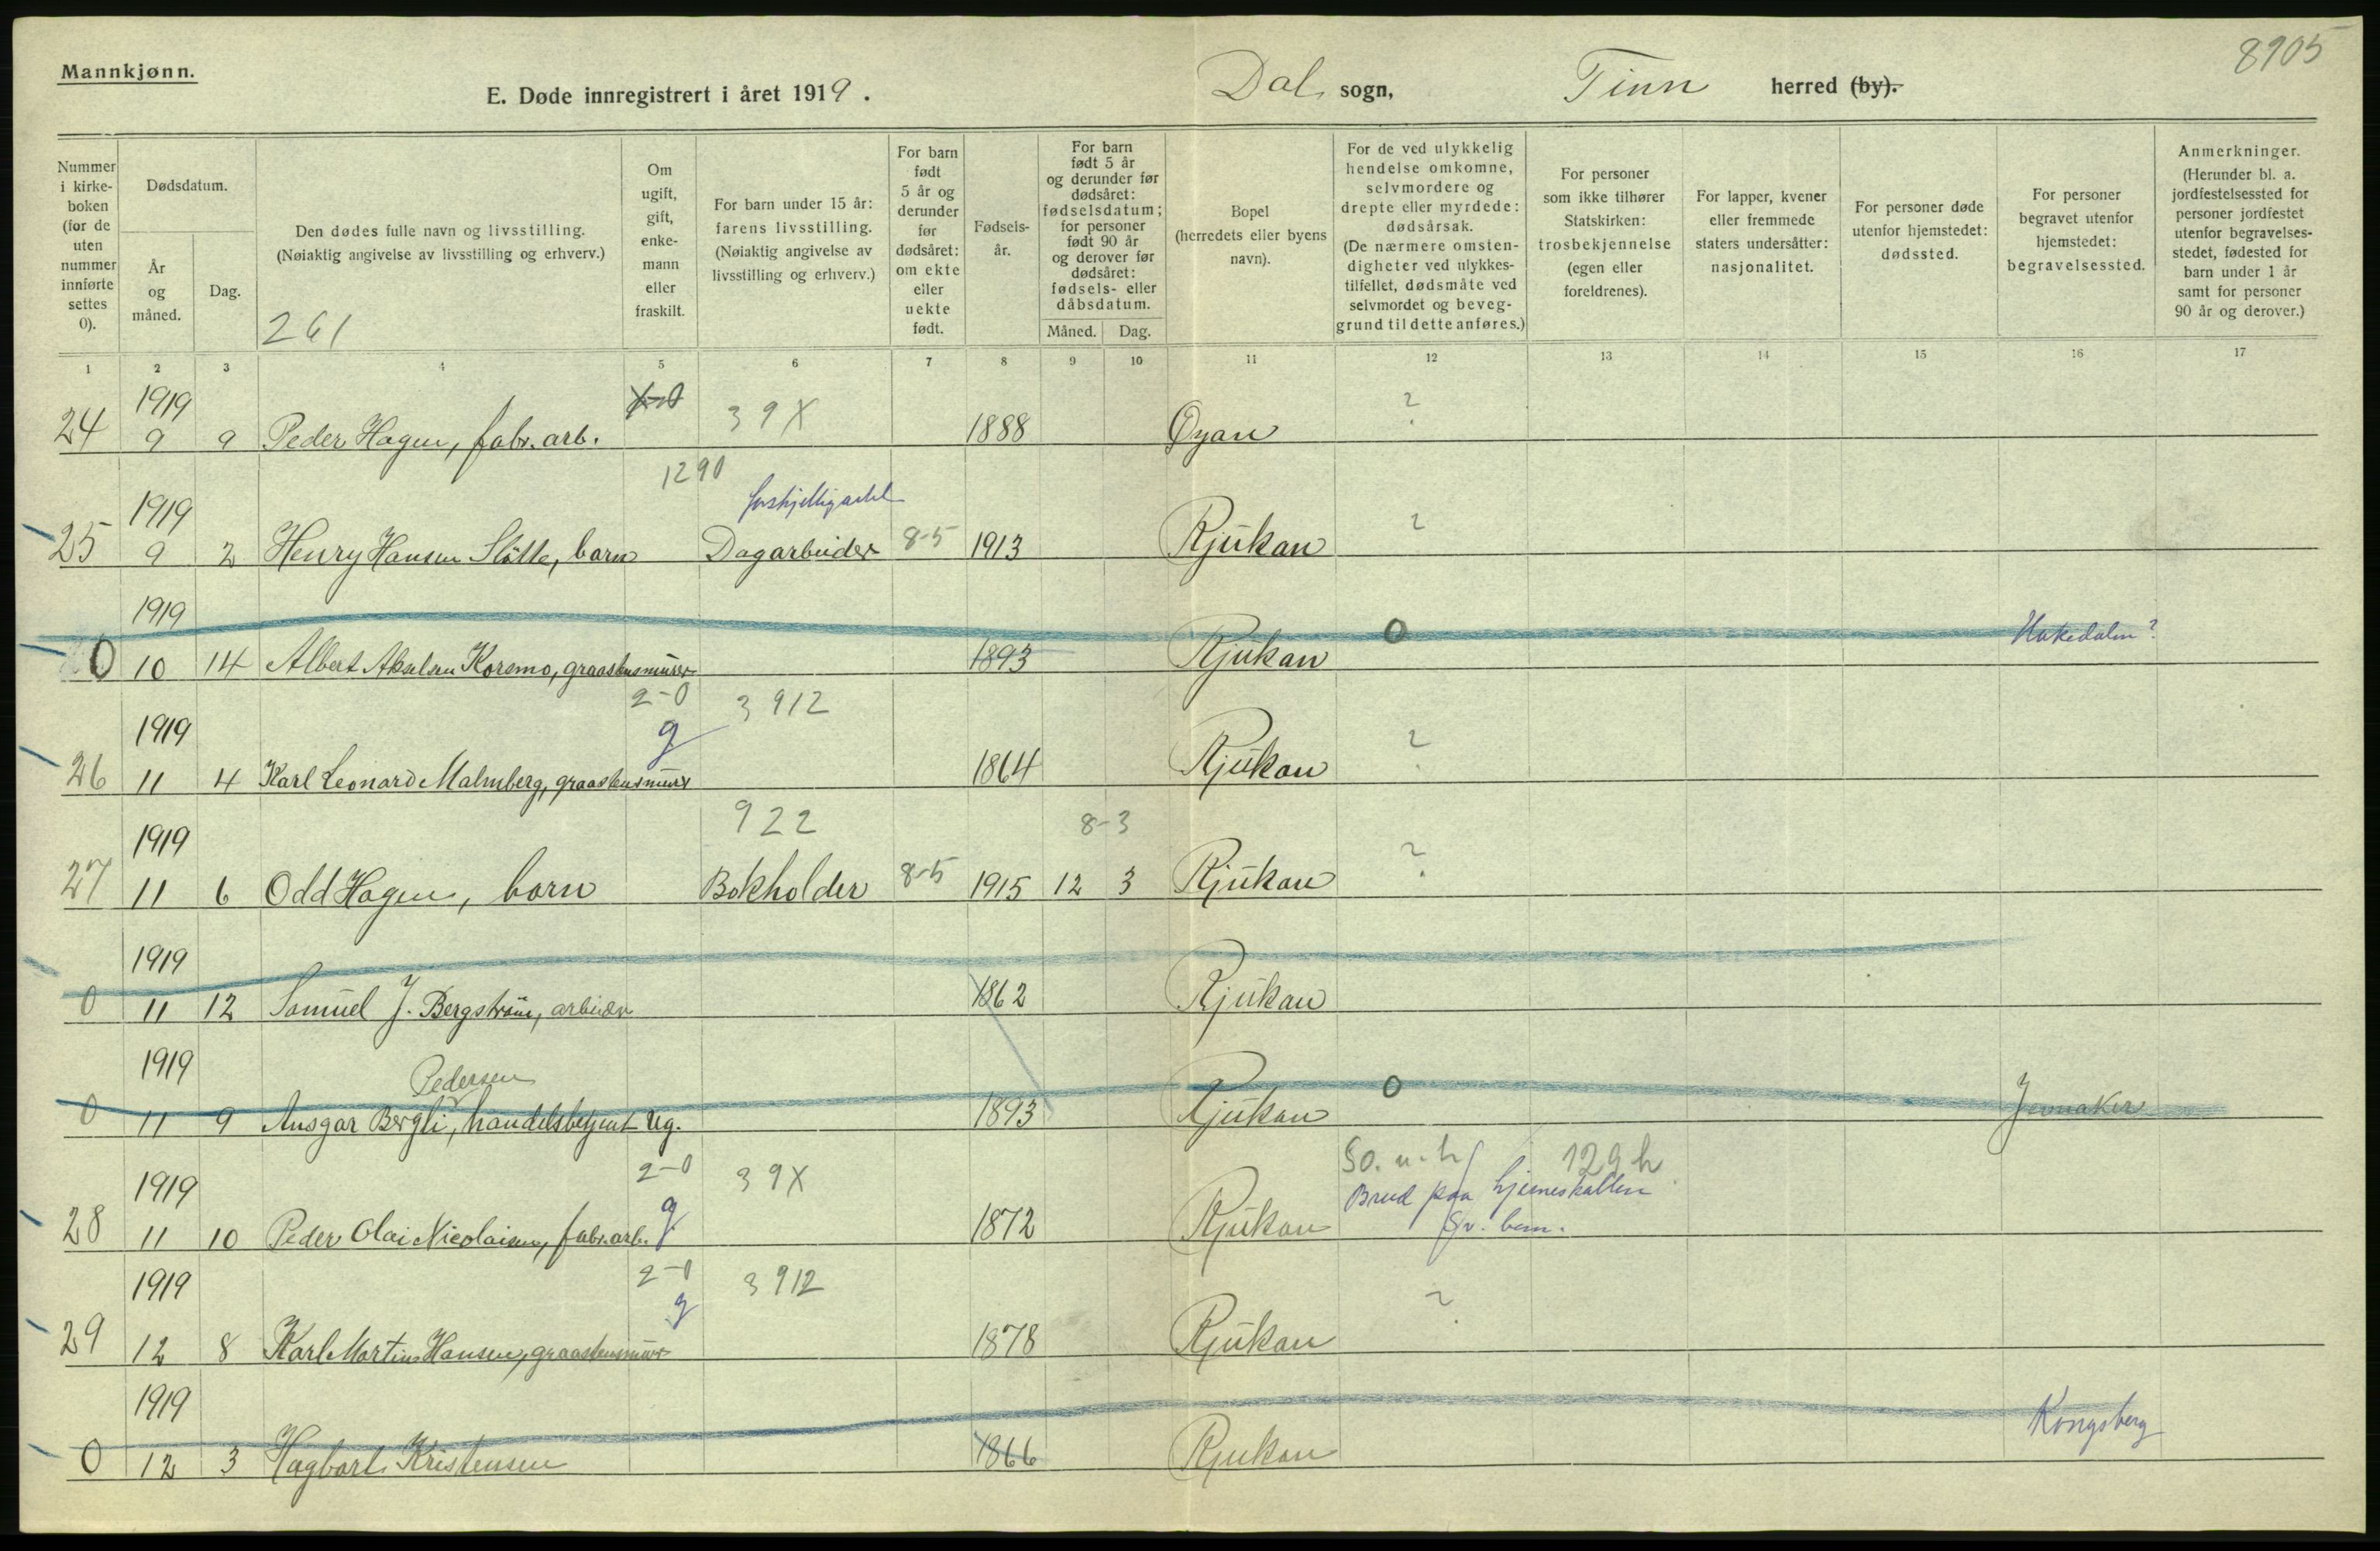 8905
Mannkjønn.
E. Døde innregistrert i året 1919. Dal sogn, Tinn herred (by).
Nummer i kirke-boken (for de uten nummer innførte settes 0).
Dødsdatum.
År og måned.
Dag.
Den dødes fulle navn og livsstilling.
(Nøiaktig angivelse av livsstilling og erhverv.)
261
Om ugift, gift, enke-mann eller fraskilt.
For barn under 15 år: farens livsstilling.
(Nøiaktig angivelse av livsstilling og erhverv.)
For barn født 5 år og derunder før dødsåret: om ekte eller uekte født.
Fødsels-år.
For barn født 5 år og derunder før dødsåret: fødselsdatum; for personer født 90 år og derover før dødsåret: fødsels- eller dåbsdatum.
Måned. Dag.
Bopel (herredets eller byens navn).
For de ved ulykkelig hendelse omkomne, selvmordere og drepte eller myrdede: dødsårsak.
(De nærmere omsten-digheter ved ulykkes-tilfellet, dødsmåte ved selvmordet og beveg-grund til dette anføres.)
For personer som ikke tilhører Statskirken: trosbekjennelse (egen eller foreldrenes).
For lapper, kvener eller fremmede staters undersåtter: nasjonalitet.
For personer døde utenfor hjemstedet: dødssted.
For personer begravet utenfor hjemstedet: begravelsessted.
Anmerkninger.
(Herunder bl. a. jordfestelsessted for personer jordfestet utenfor begravelses-stedet, fødested for barn under 1 år samt for personer 90 år og derover.)
1 2 3 4 5 6 7 8 9 10 11 12 13 14 15 16 17
1919 39X ?
24 9 9 Peder Hagen, fabr. arb. 1888 Øyan
1290
1919 ?
25 9 2 Henry Hansen Slåtte, barn Dagarbeider 8-5 1913 Rjukan
1919 0 Hakedalen?
0 10 14 Albert Akselsen Korsmo, graastensmurer 1893 Rjukan
2-0 3912
1919 g ?
26 11 4 Karl Leonard Malmberg, graastensmurer 1864 Rjukan
922 8-3
1919 ?
27 11 6 Odd Hagen, barn Bokholder 8-5 1915 12 3 Rjukan
1919
0 11 12 Samuel J. Bergström, arbeider 1862 Rjukan
1919 Pedersen 0
0 11 9 Ansgar Bergli, handelsbetjent ug. 1893 Rjukan Jevnaker
2-0 39X 129 h
1919 g Brud paa hjerneskallen
28 11 10 Peder Olai Nicolaisen, fabr. arb. 1872 Rjukan
2-0 3912
1919 g ?
29 12 8 Karl Martin Hansen, graastensmurer 1878 Rjukan
1919 Kongsberg
0 12 3 Hagbart Kristensen 1866 Rjukan